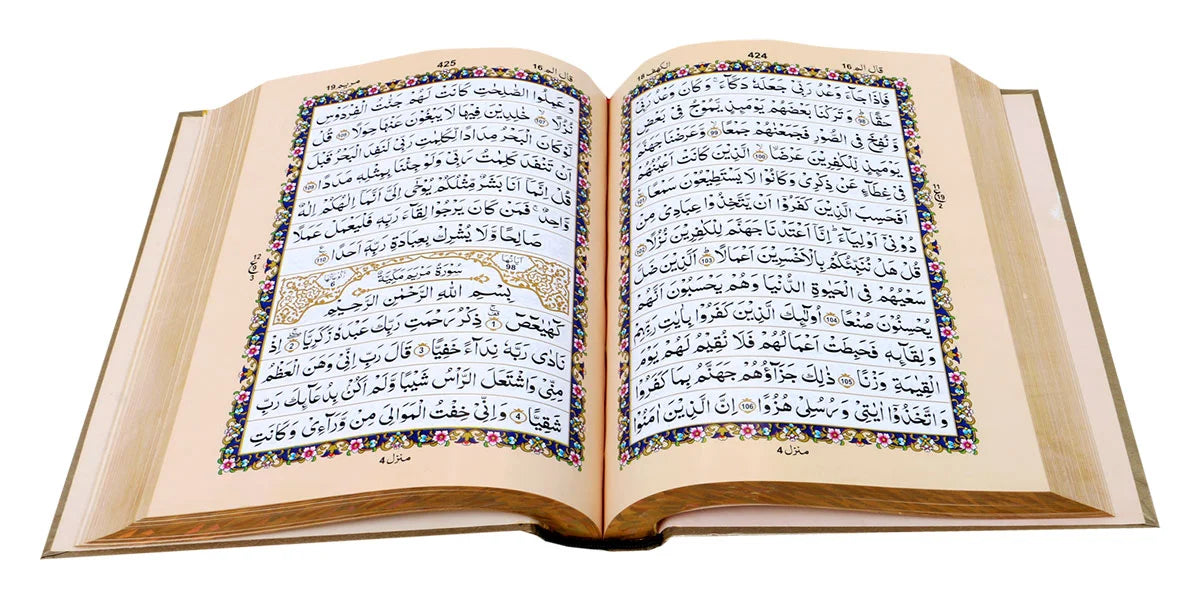 قال الم 16 424 الكهف 18
فَاِذَا جَآءَ وَعْدُ رَبِّیْ جَعَلَهٗ دَكَّآءَ ۚ وَ كَانَ وَعْدُ رَبِّیْ
حَقًّا ؕ 98 وَ تَرَكْنَا بَعْضَهُمْ یَوْمَىِٕذٍ یَّمُوْجُ فِیْ بَعْضٍ
وَّ نُفِخَ فِی الصُّوْرِ فَجَمَعْنٰهُمْ جَمْعًا 99 وَّ عَرَضْنَا جَهَنَّمَ
یَوْمَىِٕذٍ لِّلْكٰفِرِیْنَ عَرْضَا 100 الَّذِیْنَ كَانَتْ اَعْیُنُهُمْ
فِیْ غِطَآءٍ عَنْ ذِكْرِیْ وَ كَانُوْا لَا یَسْتَطِیْعُوْنَ سَمْعًا 101
اَفَحَسِبَ الَّذِیْنَ كَفَرُوْۤا اَنْ یَّتَّخِذُوْا عِبَادِیْ مِنْ
دُوْنِیْۤ اَوْلِیَآءَ ؕ اِنَّاۤ اَعْتَدْنَا جَهَنَّمَ لِلْكٰفِرِیْنَ نُزُلًا 102
قُلْ هَلْ نُنَبِّئُكُمْ بِالْاَخْسَرِیْنَ اَعْمَالًا ؕ 103 اَلَّذِیْنَ ضَلَّ
سَعْیُهُمْ فِی الْحَیٰوةِ الدُّنْیَا وَ هُمْ یَحْسَبُوْنَ اَنَّهُمْ
یُحْسِنُوْنَ صُنْعًا 104 اُولٰٓىِٕكَ الَّذِیْنَ كَفَرُوْا بِاٰیٰتِ رَبِّهِمْ
وَ لِقَآىِٕهٖ فَحَبِطَتْ اَعْمَالُهُمْ فَلَا نُقِیْمُ لَهُمْ یَوْمَ
الْقِیٰمَةِ وَزْنًا 105 ذٰلِكَ جَزَآؤُهُمْ جَهَنَّمُ بِمَا كَفَرُوْا
وَ اتَّخَذُوْۤا اٰیٰتِیْ وَ رُسُلِیْ هُزُوًا 106 اِنَّ الَّذِیْنَ اٰمَنُوْا
منزل 4
قال الم 16 425 مریم 19
وَ عَمِلُوا الصّٰلِحٰتِ كَانَتْ لَهُمْ جَنّٰتُ الْفِرْدَوْسِ
نُزُلًا 107 خٰلِدِیْنَ فِیْهَا لَا یَبْغُوْنَ عَنْهَا حِوَلًا 108 قُلْ
لَّوْ كَانَ الْبَحْرُ مِدَادًا لِّكَلِمٰتِ رَبِّیْ لَنَفِدَ الْبَحْرُ قَبْلَ
اَنْ تَنْفَدَ كَلِمٰتُ رَبِّیْ وَ لَوْ جِئْنَا بِمِثْلِهٖ مَدَدًا 109
قُلْ اِنَّمَاۤ اَنَا بَشَرٌ مِّثْلُكُمْ یُوْحٰۤی اِلَیَّ اَنَّمَاۤ اِلٰهُكُمْ اِلٰهٌ
وَّاحِدٌ ۚ فَمَنْ كَانَ یَرْجُوْا لِقَآءَ رَبِّهٖ فَلْیَعْمَلْ عَمَلًا
صَالِحًا وَّ لَا یُشْرِكْ بِعِبَادَةِ رَبِّهٖۤ اَحَدًا 110
اٰیاتها 98 سورة مریم مكیة
بِسْمِ اللّٰهِ الرَّحْمٰنِ الرَّحِیْمِ
كٓهٰیٰعٓصٓ 1 ذِكْرُ رَحْمَتِ رَبِّكَ عَبْدَهٗ زَكَرِیَّا 2 اِذْ
نَادٰی رَبَّهٗ نِدَآءً خَفِیًّا 3 قَالَ رَبِّ اِنِّیْ وَهَنَ الْعَظْمُ
مِنِّیْ وَ اشْتَعَلَ الرَّاْسُ شَیْبًا وَّ لَمْ اَكُنْۢ بِدُعَآىِٕكَ رَبِّ
شَقِیًّا 4 وَ اِنِّیْ خِفْتُ الْمَوَالِیَ مِنْ وَّرَآءِیْ وَ كَانَتِ
منزل 4